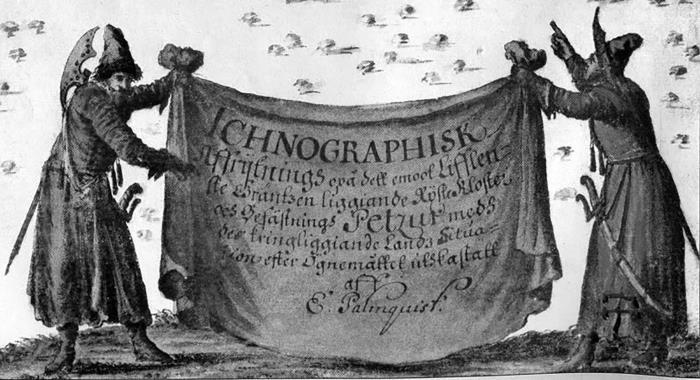 ICHNOGRAPHISK
Affrijtnings opå dett emoot Lifflen-
ske Gräntzen liggiande Ryske Kloster
och Befästnings Petzur medh
des kringliggiande Landz Situa-
tion efter Ögnemåttet uthkastatt
aff
E. Palmquist.